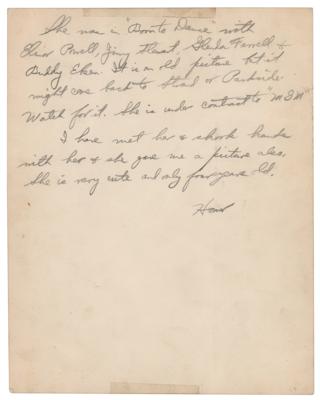 She was in "Born to Dance" with
Elinor Powell, Jimmy Stewart, Glenda Farrell, &
Buddy Ebsen. It is an old picture but it
might come back to Strand or Parkside.
Watch for it. She is under contract to "M G M"
I have met her & shook hands
with her & she gave me a picture also.
She is very cute and only four years old.